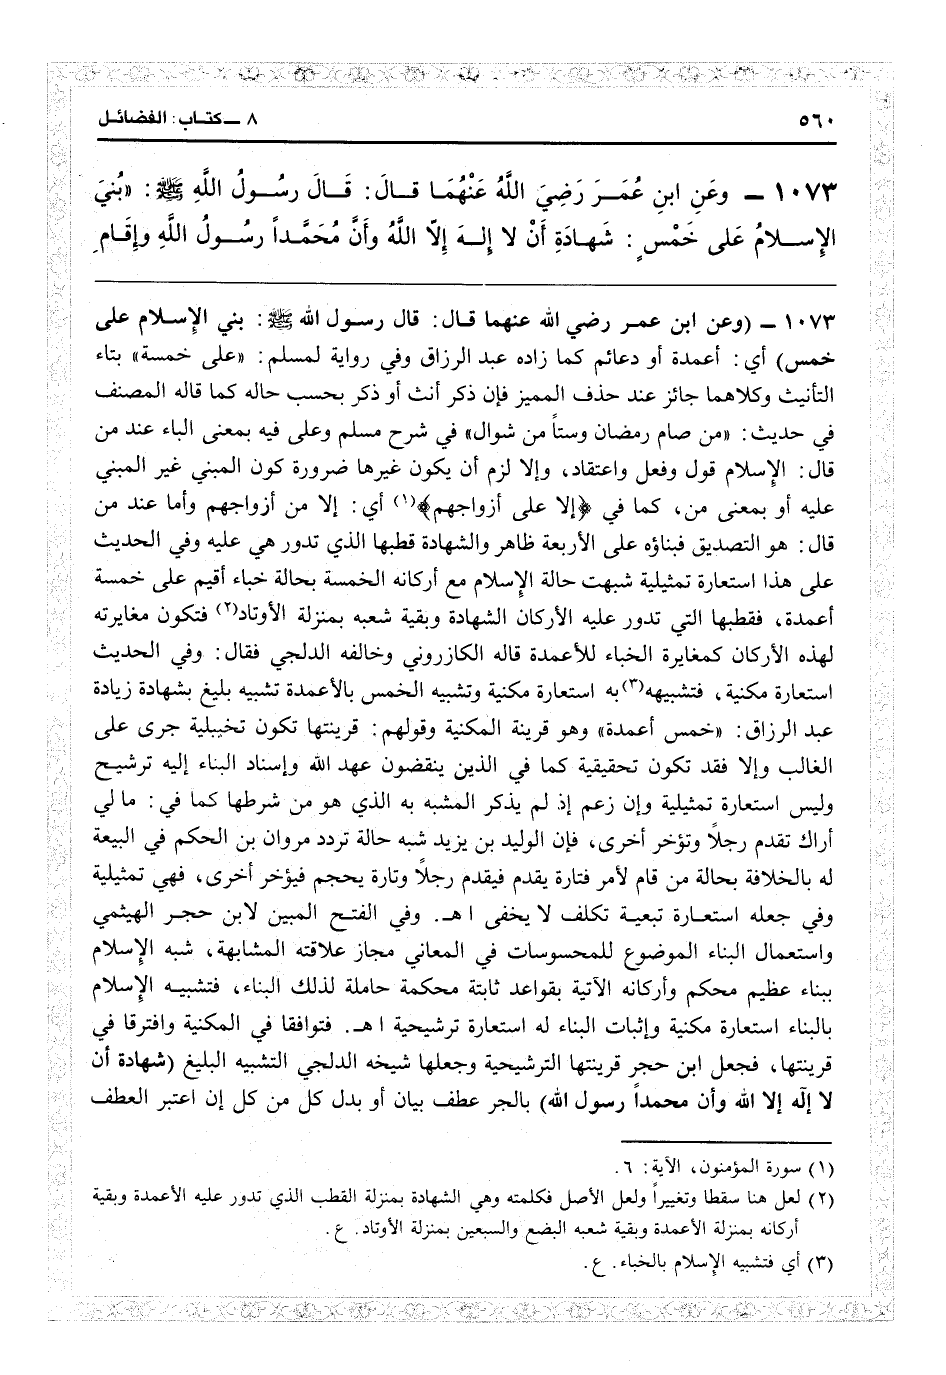 ٥٦٠
٨ ــ كتاب: الفضائل
١٠٧٣ ــ وعَنِ ابنِ عُمَـرَ رَضِيَ اللَّهُ عَنْهُمَا قـالَ: قَالَ رسُـولُ اللَّهِ ﷺ: «بُنِيَ
الإِسـلامُ عَلى خَمْسٍ: شَهادَةِ أَنْ لا إِلـهَ إِلّا اللَّهُ وأَنَّ مُحَمَّداً رسُـولُ اللَّهِ وإِقَـامِ
١٠٧٣ ــ (وعن ابن عمر رضي الله عنهما قال: قال رسول الله ﷺ: بني الإسلام على
خمس) أي: أعمدة أو دعائم كما زاده عبد الرزاق وفي رواية لمسلم: «على خمسة» بتاء
التأنيث وكلاهما جائز عند حذف المميز فإن ذكر أنث أو ذكر بحسب حاله كما قاله المصنف
في حديث: «من صام رمضان وستاً من شوال» في شرح مسلم وعلى فيه بمعنى الباء عند من
قال: الإسلام قول وفعل واعتقاد، وإلا لزم أن يكون غيرها ضرورة كون المبني غير المبني
عليه أو بمعنى من، كما في ﴿إلا على أزواجهم﴾(١) أي: إلا من أزواجهم وأما عند من
قال: هو التصديق فبناؤه على الأربعة ظاهر والشهادة قطبها الذي تدور هي عليه وفي الحديث
على هذا استعارة تمثيلية شبهت حالة الإسلام مع أركانه الخمسة بحالة خباء أقيم على خمسة
أعمدة، فقطبها التي تدور عليه الأركان الشهادة وبقية شعبه بمنزلة الأوتاد(٢) فتكون مغايرته
لهذه الأركان كمغايرة الخباء للأعمدة قاله الكازروني وخالفه الدلجي فقال: وفي الحديث
استعارة مكنية، فتشبيهه(٣) به استعارة مكنية وتشبيه الخمس بالأعمدة تشبيه بليغ بشهادة زيادة
عبد الرزاق: «خمس أعمدة» وهو قرينة المكنية وقولهم: قرينتها تكون تخييلية جرى على
الغالب وإلا فقد تكون تحقيقية كما في الذين ينقضون عهد الله وإسناد البناء إليه ترشيح
وليس استعارة تمثيلية وإن زعم إذ لم يذكر المشبه به الذي هو من شرطها كما في: ما لي
أراك تقدم رجلاً وتؤخر أخرى، فإن الوليد بن يزيد شبه حالة تردد مروان بن الحكم في البيعة
له بالخلافة بحالة من قام لأمر فتارة يقدم فيقدم رجلاً وتارة يحجم فيؤخر أخرى، فهي تمثيلية
وفي جعله استعارة تبعية تكلف لا يخفى اهـ. وفي الفتح المبين لابن حجر الهيثمي
واستعمال البناء الموضوع للمحسوسات في المعاني مجاز علاقته المشابهة، شبه الإسلام
ببناء عظيم محكم وأركانه الآتية بقواعد ثابتة محكمة حاملة لذلك البناء، فتشبيـه الإسلام
بالبناء استعارة مكنية وإثبات البناء له استعارة ترشيحية اهـ. فتوافقا في المكنية وافترقا في
قرينتها، فجعل ابن حجر قرينتها الترشيحية وجعلها شيخه الدلجي التشبيه البليغ (شهادة أن
لا إلٰه إلا الله وأن محمداً رسول الله) بالجر عطف بيان أو بدل كل من كل إن اعتبر العطف
(١) سورة المؤمنون، الآية: ٦.
(٢) لعل هنا سقطا وتغييراً ولعل الأصل فكلمته وهي الشهادة بمنزلة القطب الذي تدور عليه الأعمدة وبقية
أركانه بمنزلة الأعمدة وبقية شعبه البضع والسبعين بمنزلة الأوتاد. ع.
(٣) أي فتشبيه الإسلام بالخباء. ع.